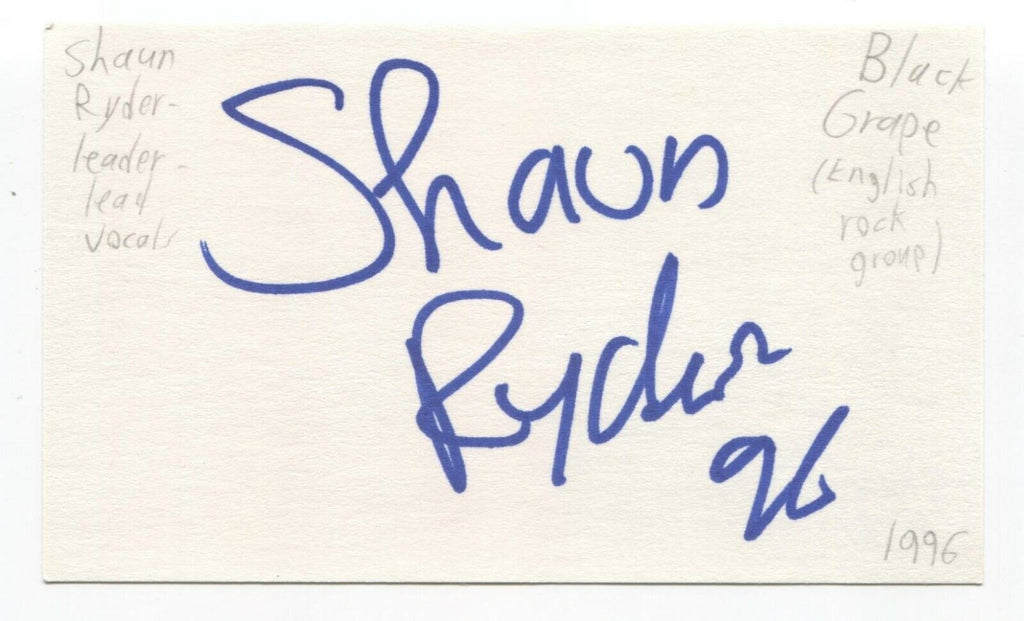 Shaun
Ryder-
leader-
lead
vocals
Black
Grape
(English
rock
group)
Shaun
Ryder
96
1996